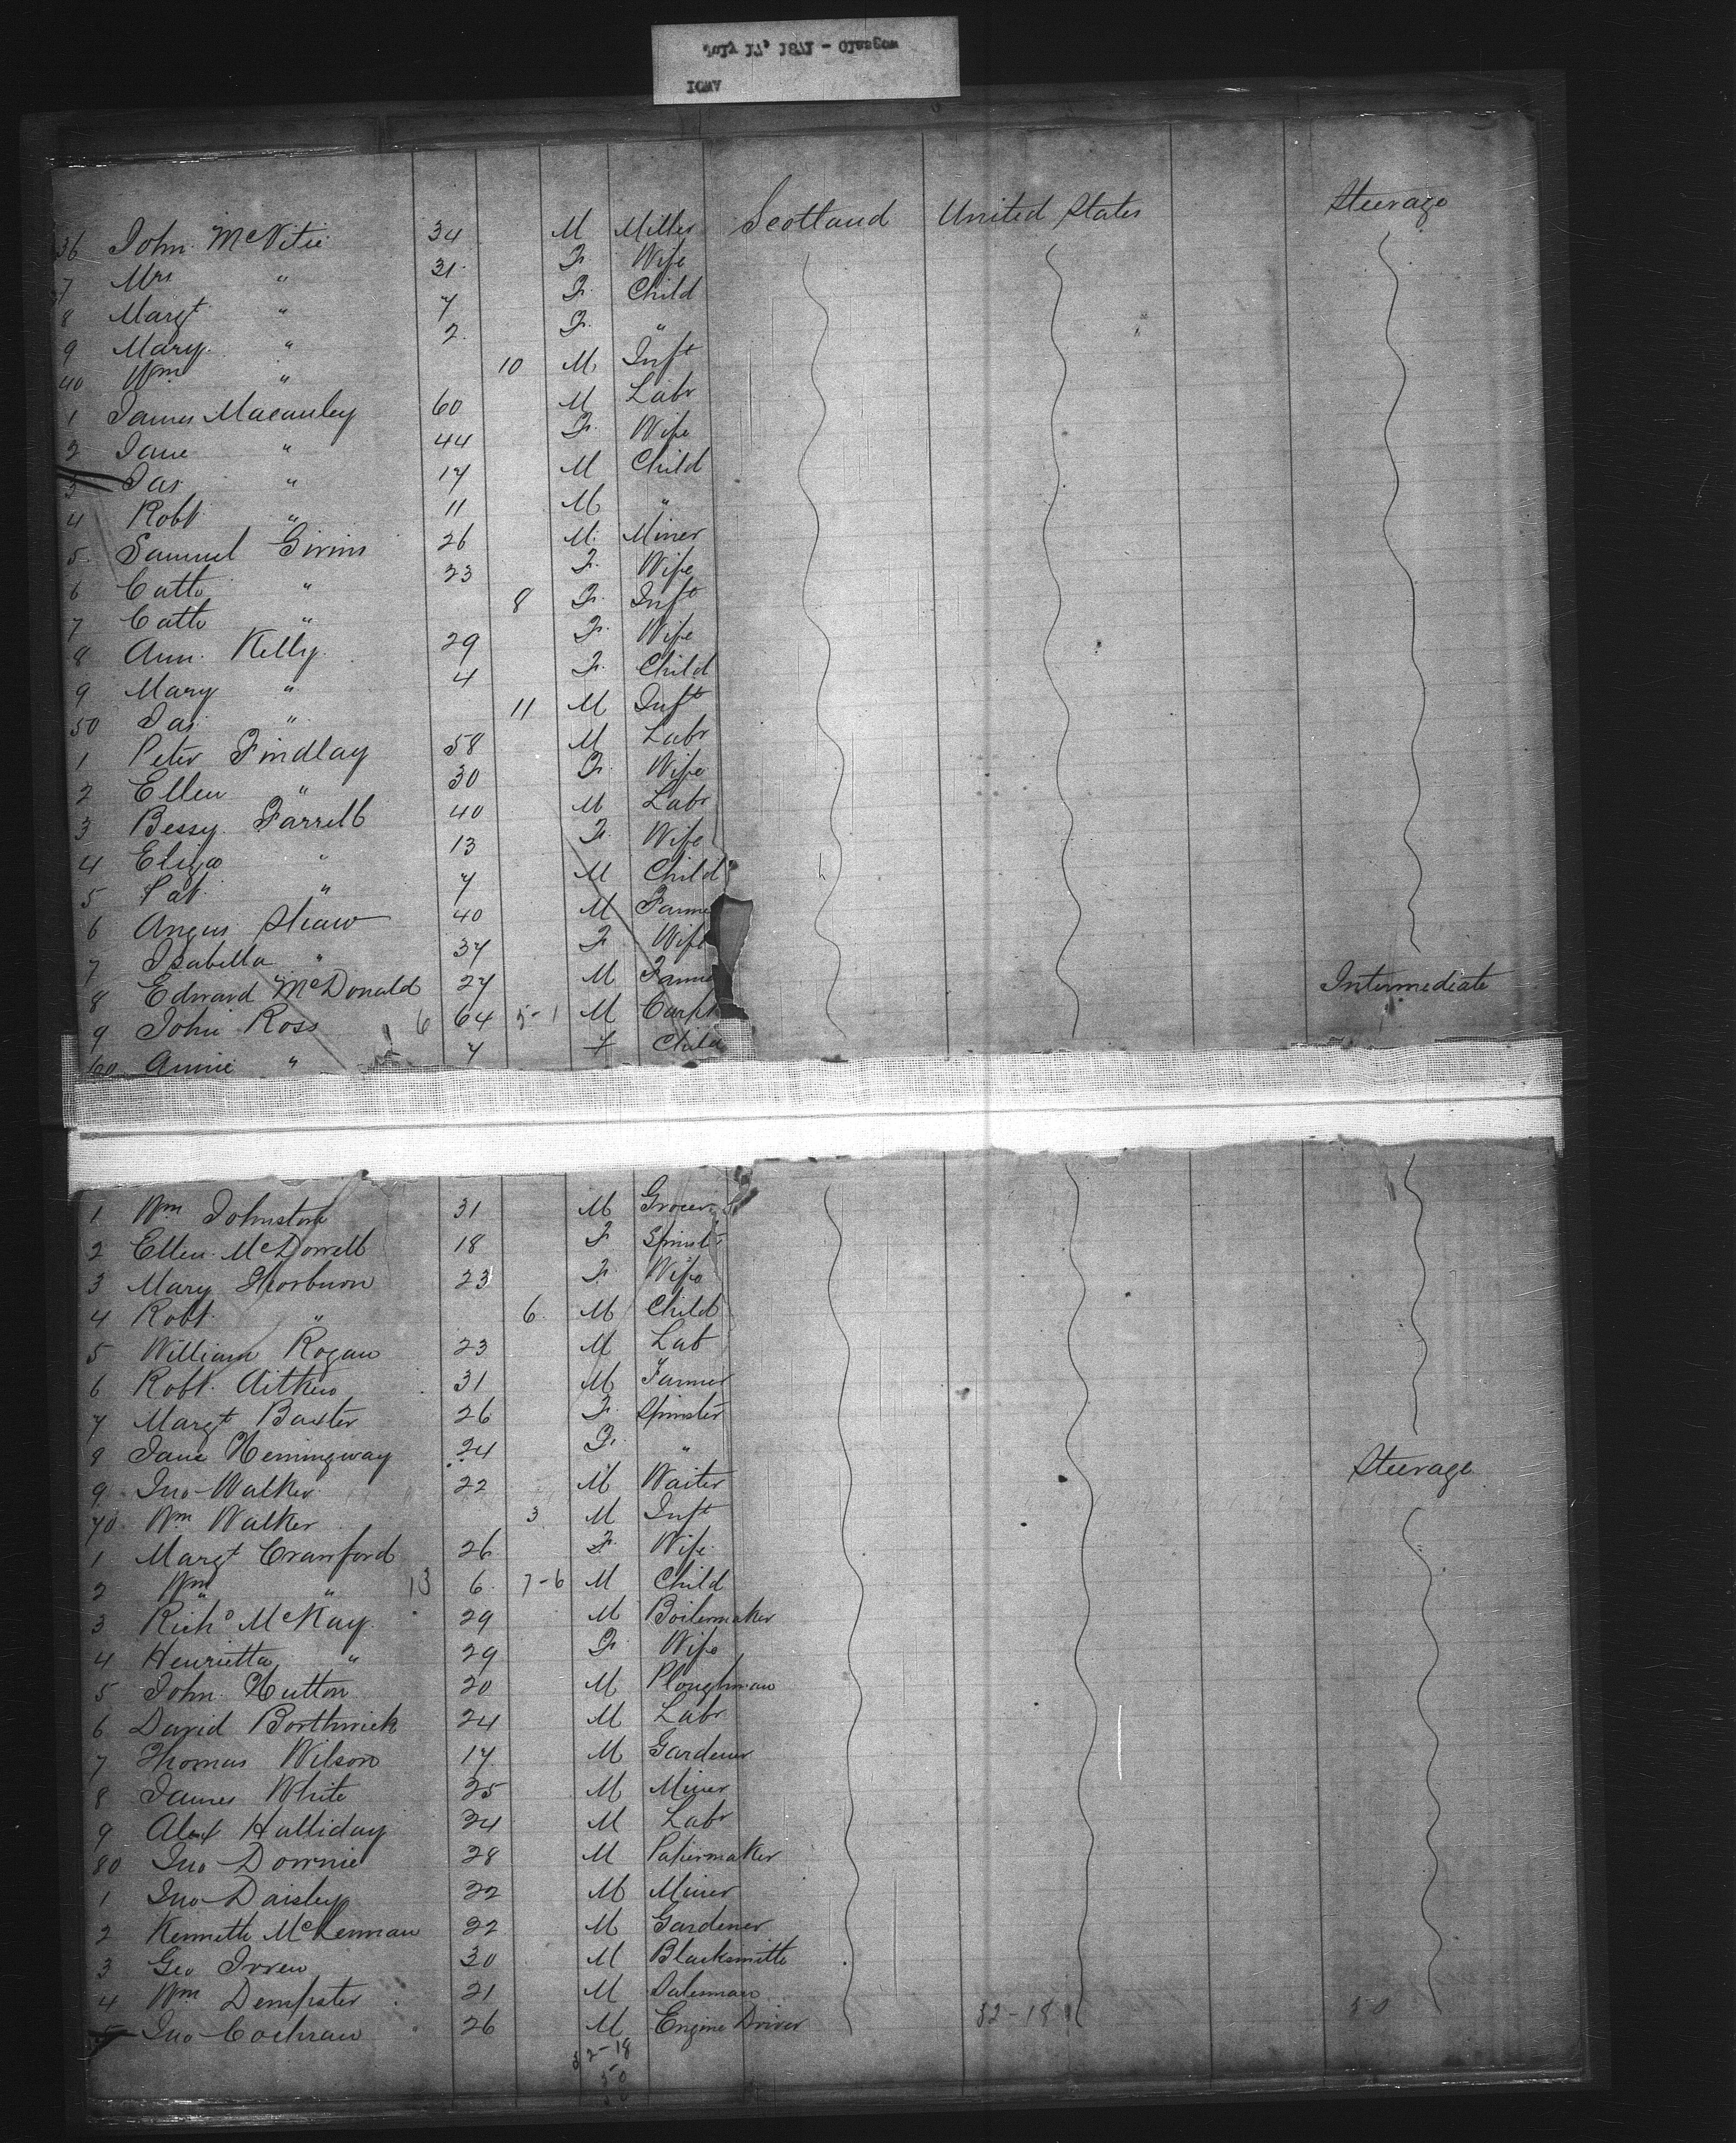 July 17, 1871 - Glasgow
IOWA
36 John McVitie 34 M Miller Scotland United States Steerage
7 Mrs " 31 F. Wife
8 Margt " 7 F. Child
9 Mary " 2 F. "
40 Wm " 10 M Inft
1 James Macauley 60 M Labr
2 Jane " 44 F. Wife
3 Jas " 17 M Child
4 Robt " 11 M "
5 Samuel Girvin 26 M. Miner
6 Cath " 23 F. Wife
7 Cath " 8 F. Inft
8 Ann Kelly 29 F. Wife
9 Mary " 4 F. Child
50 Jas " 11 M Inft
1 Peter Findlay 58 M Labr
2 Ellen " 30 F. Wife
3 Bessy Farrell 40 M Labr
4 Eliza " 13 F. Wife
5 Pat " 7 M Child
6 Angus Shaw 40 M Farme
7 Isabella " 37 F Wife
8 Edward McDonald 27 M Farme Intermediate
9 John Ross 6 64 5-1 M Carpt
60 Annie " 7 F Child
1 Wm Johnston 31 M Grocer
2 Ellen McDowell 18 F Spinstr
3 Mary Thorburn 23 F. Wife
4 Robt " 6 M Child
5 William Rogan 23 M Lab
6 Robt. Aitken 31 M Farmer
7 Margt Baxter 26 F. Spinster
8 Jane Hemingway 24 F. " Steerage
9 Jno Walker 22 M Waiter
70 Wm Walker 3 M Inft
1 Margt Crawford 26 F. Wife
2 Wm " 13 6 7-6 M Child
3 Richd McKay 29 M Boilermaker
4 Henrietta " 29 F. Wife
5 John Hutton 20 M Ploughman
6 David Borthwick 24 M Labr
7 Thomas Wilson 17 M Gardener
8 James White 25 M Miner
9 Alex Halliday 24 M Labr
80 Jno Downie 28 M Papermaker
1 Jno Daisley 22 M Miner
2 Kenneth McLennan 22 M Gardener
3 Geo Irvew 30 M Blacksmith
4 Wm Dempster 21 M Salesman
5 Jno Cochran 26 M Engine Driver 32-18 50
32-18
50